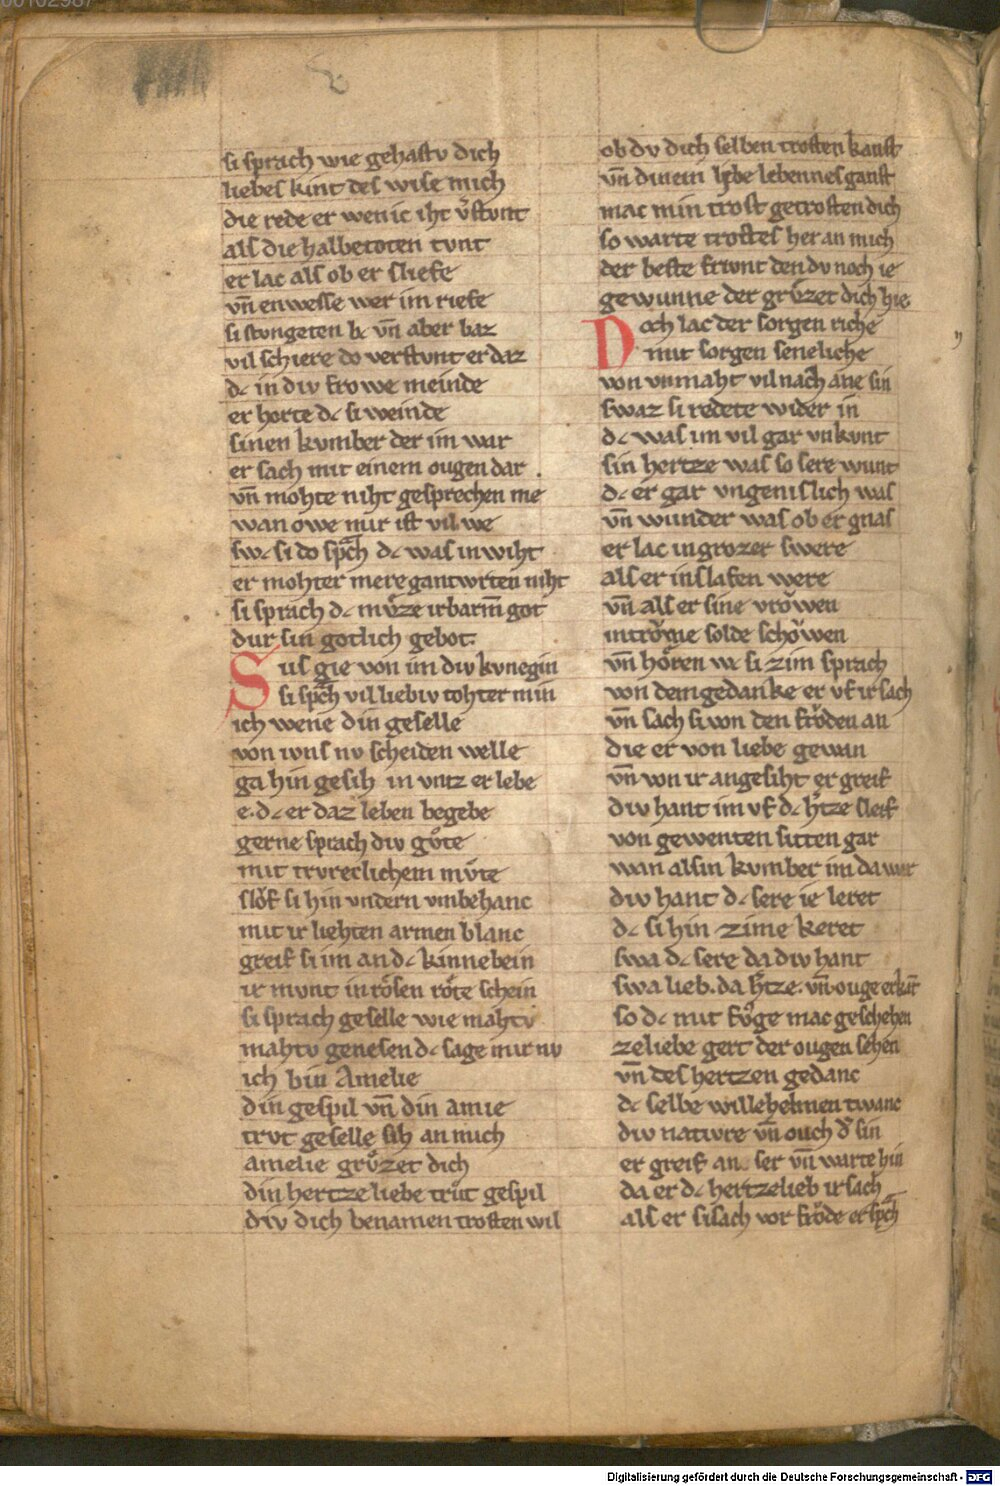 si sprach wie gehastv dich
liebes kint des wise mich
die rede er wenic iht v̓stvnt
als die halbetoten tvnt
er lac als ob er sliefe
vn̄ enwesse wer im riefe
si stvngeten bc vn̄ aber baz
vil schiere do verstvnt er daz
dc in div frowe meinde
er horte dc si weinde
sinen kvmber der im war
er sach mit einem ougen dar
vn̄ mohte niht gesprechen me
wan owe mir ist vil we
swc si do spͣch dc was inwiht
er mohter mere gantwrten niht
si sprach dc mvͤze irbarm̄ got
dur sin gotlich gebot
Sus gie von im div kvnegin
si spͣch vil liebiv tohter min
ich wene din geselle
von wns nv scheiden welle
ga hin gesih in vntz er lebe
e. dc er daz leben begebe
gerne sprach div gvͦte
mit trvreclichem mvͦte
slǒf si hin vndern vmbehanc
mit ir liehten armen blanc
greif si im an dc kinnebein
ir mvnt in rosen roͤte schein
si sprach geselle wie mahtv
mahtv genesen dc sage mir nv
ich bin Amelie
din gespil vn̄ din amie
trvt geselle sih an mich
amelie grvͤzet dich
din hertzeliebe trvͦt gespil
div dich benamen trosten wil
ob dv dich selben trosten kanst
vn̄ dinem libe lebennes ganst
mac min trost getrosten dich
so warte trostes her an mich
der beste frivnt den dv noch ie
gewunne der grvͤzet dich hie
Doch lac der sorgen riche
mit sorgen seneliche
von vnmaht vil nach ane sin
swaz si redete wider in
dc was im vil gar vnkvnt
sin hertze was so sere wunt
dc er gar vngenislich was
vn̄ wunder was ob er gnas
er lac in grozer swere
als er inslafen were
vn̄ als er sine vrǒwen
introͮme solde schǒwen
vn̄ hoͤren wc si zim sprach
von dem gedanke er vf ir sach
vn̄ sach si von den froͤden an
die er von liebe gewan
vn̄ von ir angesiht er greif
div hant im vf dc h̓tze sleif
von gewenten sitten gar
wan alsin kvmber im da war
div hant dc sere ie leret
dc si hin zime keret
swa dc sere da div hant
swa lieb. da h̓tze. vn̄ ouge erkāt
so dc mit fvͦge mac geschehen
zeliebe gert der ougen sehen
vn̄ des hertzen gedanc
dc selbe willehelmen twanc
div natwre vn̄ ouch d̓ sin
er greif an ser vn̄ warte hin
da er dc hertzelieb ir sach
als er si sach vor froͤde er spͣch
Digitalisierung gefördert durch die Deutsche Forschungsgemeinschaft - DFG